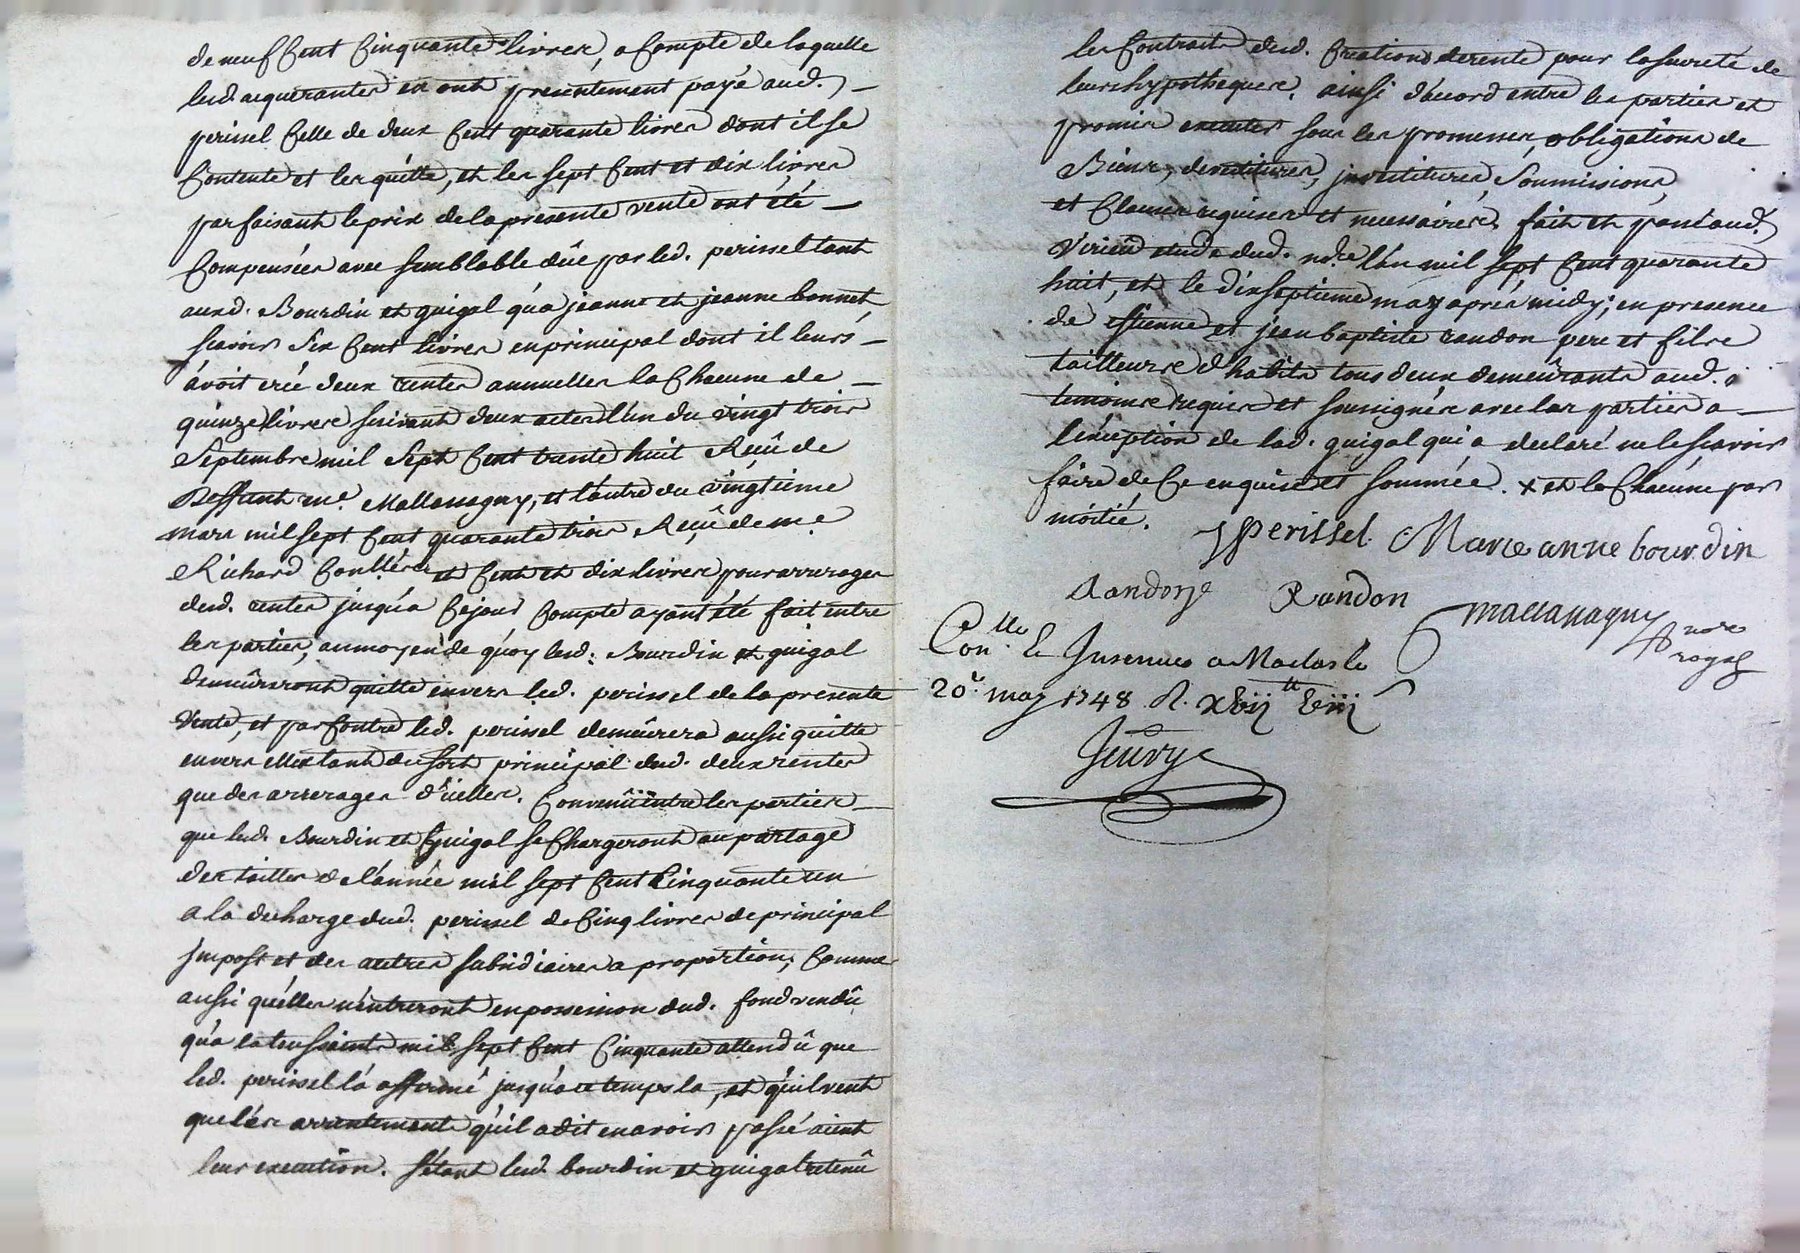 de neuf Cent Cinquante livres, a Compte de laquelle
lesd. acquerantes en ont presentement payé aud.
perissel Celle de deux Cent quarante livres dont il se
Contente et les quitte, et les sept Cent et dix livres
parfaisant le prix de la presente vente ont été
Compensées avec semblable dûe par led. perissel tant
auxd. Bourdin et guigal qu'a jeanne et jeanne bonnet,
scavoir Six Cent livres en principal dont il leurs
avoit créé deux rentes annuelles la Chacune de
quinze livres suivant deux actes l'un du vingt trois
Septembre mil Sept Cent trente huit Reçû de
Deffunt me. Mallanagny, et l'autre du vingtieme
mars mil sept Cent quarante trois Reçû de me
Richard et Cent et dix livres pour arrerages
desd. rentes jusqu'a Cejour Compte ayant été fait entre
les parties, au moyen de quoy lesd. Bourdin et guigal
demeûreront quitte envers led. perissel de la presente
vente, et par Contre led. perissel demeûrera aussi quitte
envers elles tant du sort principal desd. deux rentes
que des arrerages d'icelles. Convenû entre les parties
que lesd. Bourdin et Guigal se Chargeront au partage
des tailles de l'année mil sept Cent Cinquante un
a la decharge dud. perissel de Cinq livres de principal
impost et des autres subsidiaires a proportion, Comme
aussi qu'elles n'entreront en possession dud. fond vendû
qu'a la toussaints mil sept Cent Cinquante attendû que
led. perissel l'a affermé jusqu'a ce temps la, et qu'il veut
que les arrentements qu'il a dit en avoir passé aient
leur execution. S'étant lesd. bourdin et guigal retenû
les Contraits desd. Creations de rente pour la sureté de
leurs hypotheques. ainsi d'accord entre les parties et
promis executer sous les promesses, obligations de
Biens, devetitures, investitures, Soumissions,
et Clauses requises et necessaires fait et passé aud.
Virieû etude dud. nore. l'an mil sept Cent quarante
huit, et le dixseptieme may après midy; en presence
de estienne et jean baptiste randon pere et fils
tailleurs d'habits tous deux demeûrants aud.
temoins requis et soussignés avec les parties a
l'exception de lad. guigal qui a declaré ne le scavoir
faire de Ce enquise et sommée. x et la Chacune par
moitié.
Perissel Marie anne bourdin
Randon Randon
Mallanagny nore royal
Conlle. & Insinué a Maclas le
20e. may 1748 R.